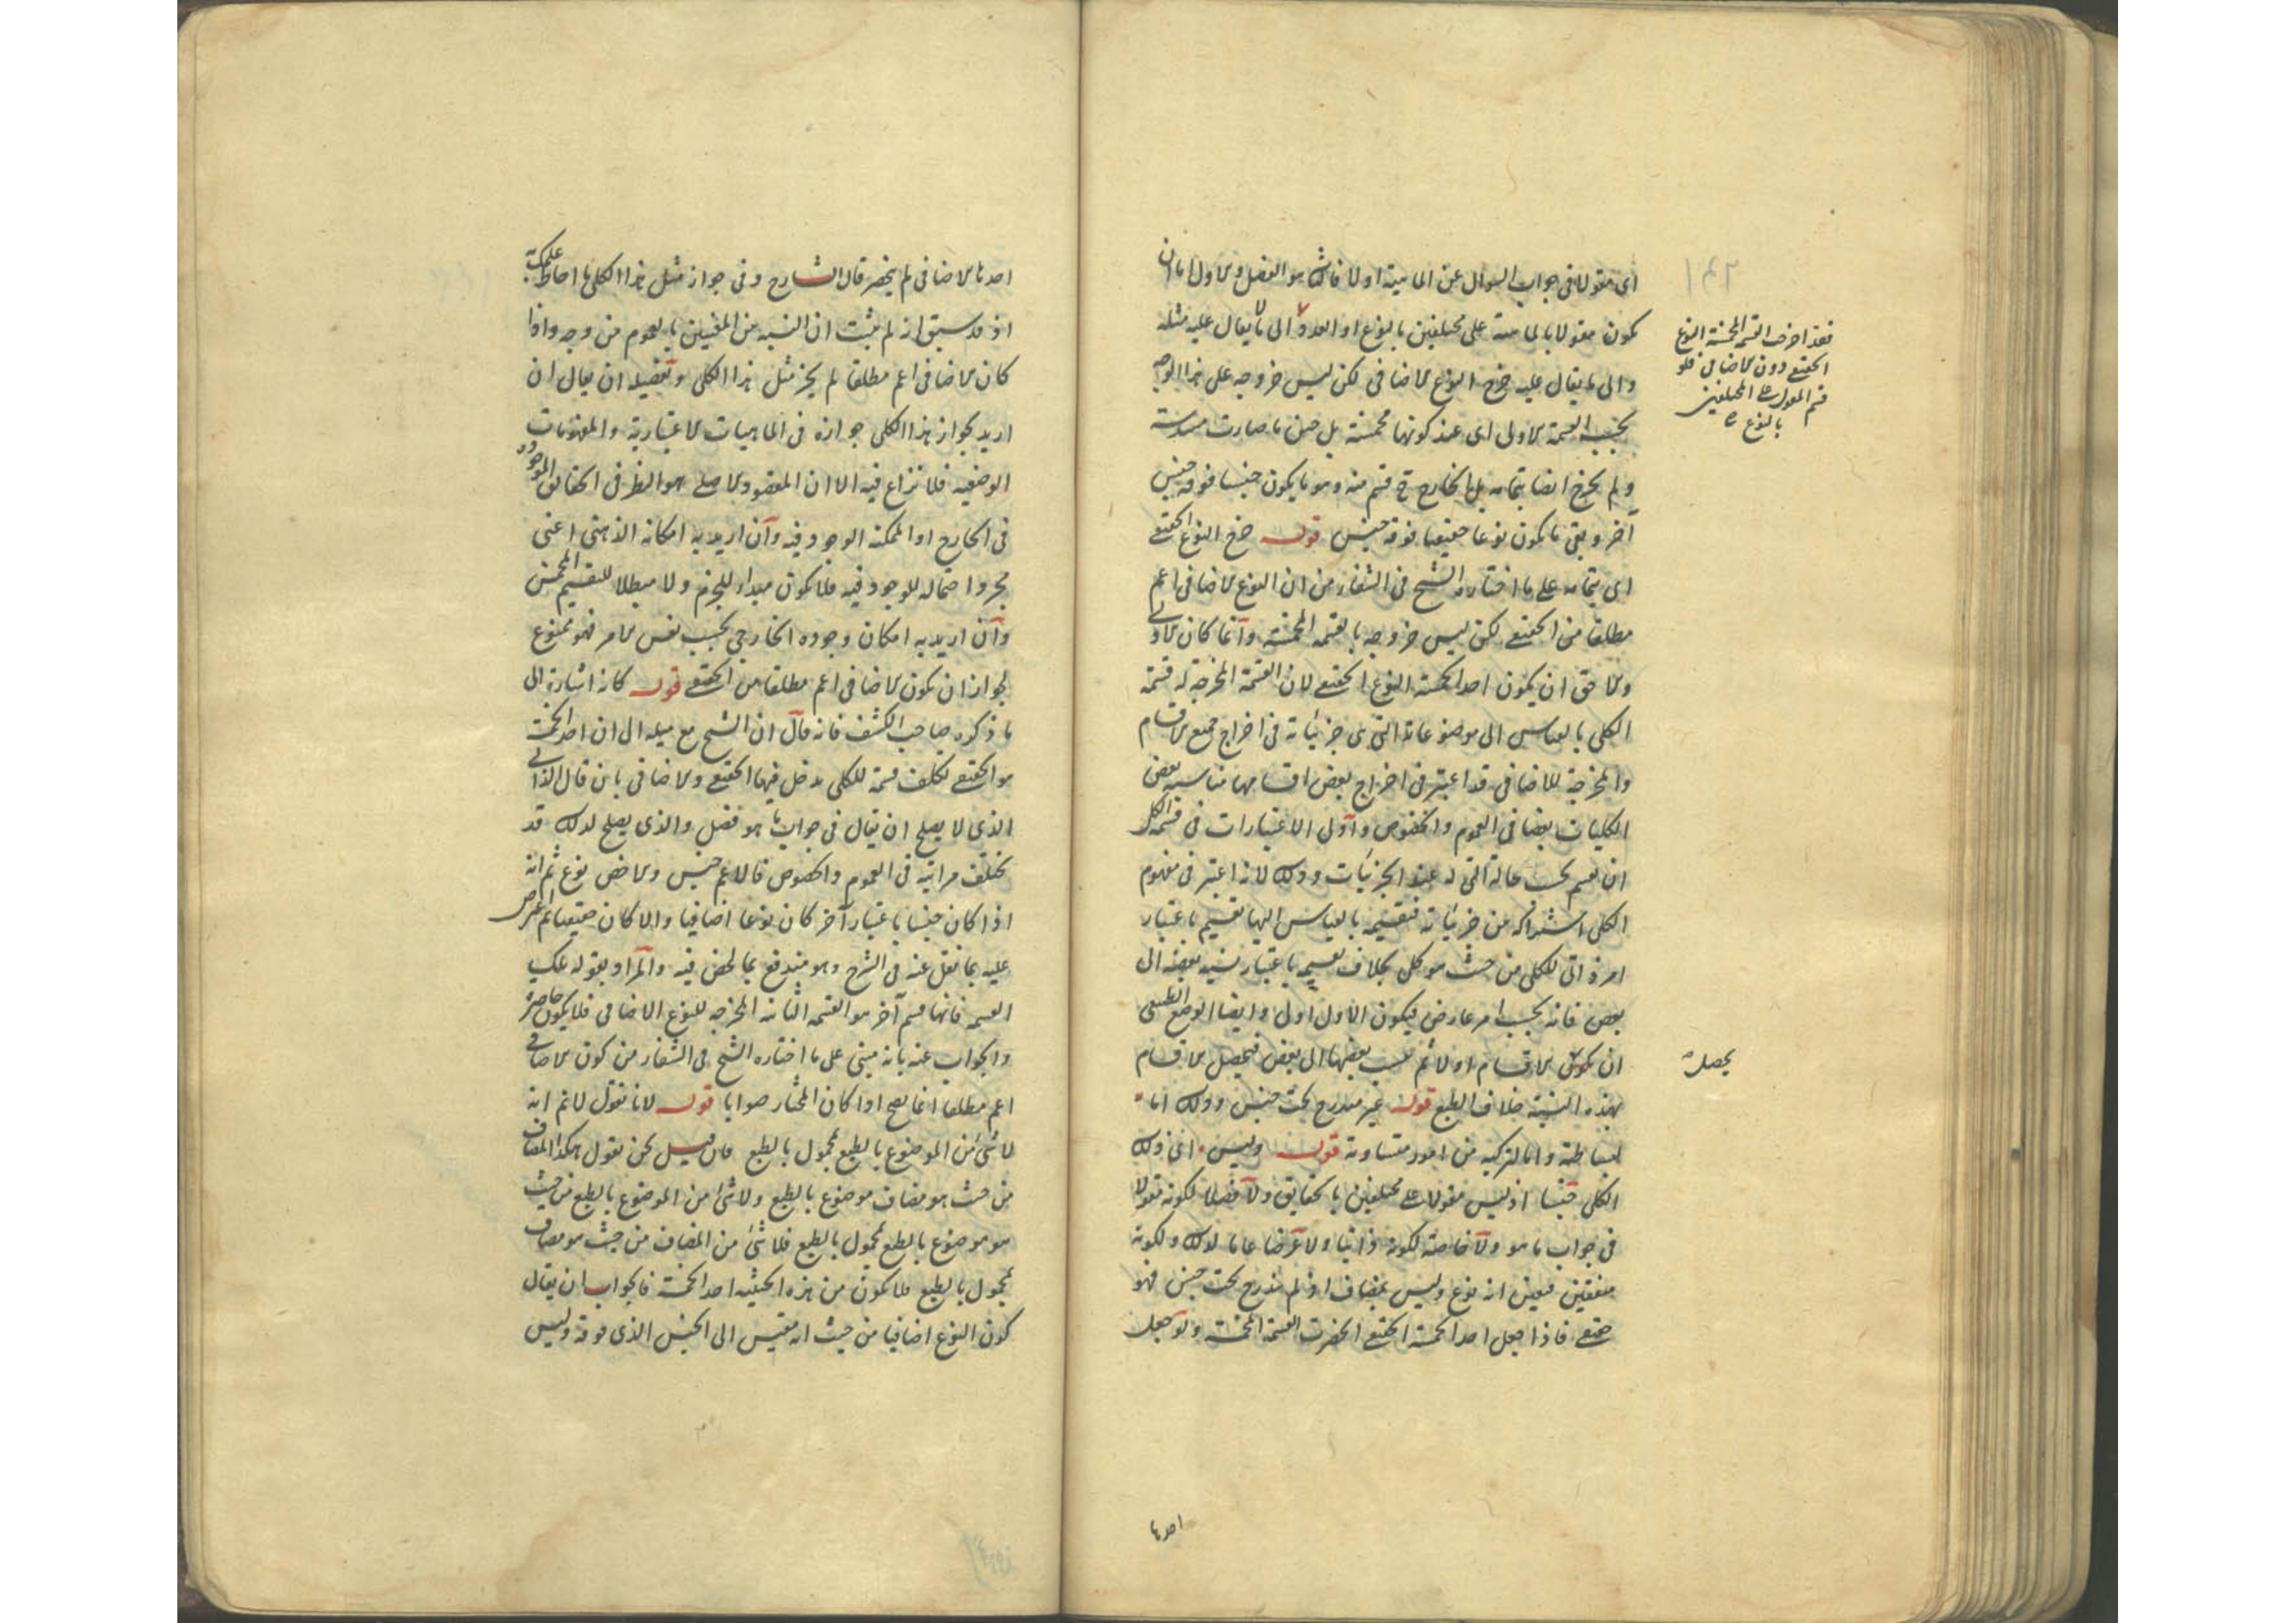 اى مقولا فى جواب السؤال عن الماهية اولا فالثانى هو الفصل والاول اما ان
يكون مقولا بالماهية على مختلفين بالنوع او العدد والى ما لا يقال عليه مثله
والى ما يقال عليه خرج النوع الاضافى لكن ليس خروجه على هذا الوجه
بحسب القسمة الاولى اى عند كونها مخمسة بل حين ما صارت مسدسة
ولم يخرج ايضا بتمامه بل الخارج ح قسم منه وهو ما يكون جنسا فوقه جنس
آخر وبقى ما يكون نوعا حقيقيا فوقه جنس قوله خرج النوع الحقيقى
اى بتمامه على ما اختاره الشيخ فى الشفاء من ان النوع الاضافى اعم
مطلقا من الحقيقى لكن ليس خروجه بالقسمة المخمسة وانما كان الاولى
والاحق ان يكون احد الخمسة النوع الحقيقى لان القسمة المخرجة له قسمة
الكلى بالقياس الى موضوعاته التى هى جزئياته فى اخراج جميع الاقسام
والمخرجة للاضافى قد اعتبر فى اخراج بعض اقسامها مناسبة بعض
الكليات بعضا فى العموم والخصوص واولى الاعتبارات فى قسمة الكلى
ان يقسم بحسب حالته التى له عند الجزئيات وذلك لانه اعتبر فى مفهوم
الكلى اشتراكه من جزئياته فتقسيمه بالقياس اليها تقسيم باعتبار
امر ذاتى للكلى من حيث هو كلى بخلاف تقسيمه باعتبار نسبة بعضه الى
بعض فانه بحسب امر عارض فيكون الاول اولى وايضا الوضع الطبيعى
ان يكون الاقسام اولا ثم ينسب بعضها الى بعض فتحصل الاقسام
بهذه النسبة خلاف الطبع قوله غير مندرج تحت جنس وذلك اما
لبساطته واما لتركبه من امور متساوية قوله وليس اى ذلك
الكلى جنسا اذ ليس مقولا على مختلفين بالحقايق ولا فصلا لكونه مقولا
فى جواب ما هو ولا خاصة لكونه ذاتيا ولا عرضا عاما لذلك ولكونه
متفقين فتعين انه نوع وليس بمضاف اذ لم يندرج تحت جنس فهو
حقيقى فاذا جعل احد الخمسة الحقيقى انحصرت القسمة المخمسة ولو جعل
فقد اخرجت القسمة المخمسة النوع
الحقيقى دون الاضافى فلو
قسم المقول على المختلفين
بالنوع
يحصل
احدها
احدها الاضافى لم ينحصر قال الشارح وفى جواز مثل هذا الكلى ما احاط علمك به
اذ قد سبق انه لم يثبت ان النسبة من المعنيين بالعموم من وجه واذا
كان الاضافى اعم مطلقا لم يجز مثل هذا الكلى وتفصيله ان يقال ان
اريد بجواز هذا الكلى جوازه فى الماهيات الاعتبارية والمفهومات
الوضعية فلا نزاع فيه الا ان المقصود الاصلى هو النظر فى الحقايق الموجودة
فى الخارج او الممكنة الوجود فيه وان اريد به امكانه الذهنى اعنى
مجرد احتماله للوجود فيه فلا يكون مبداء للجزم ولا مبطلا للتقسيم المخمس
وان اريد به امكان وجوده الخارجى بحسب نفس الامر فهو ممنوع
لجواز ان يكون الاضافى اعم مطلقا من الحقيقى قوله كانه اشارة الى
ما ذكره صاحب الكشف فانه قال ان الشيخ مع ميله الى ان احد الخمسة
هو الحقيقى تكلف قسمة للكلى يدخل فيها الحقيقى والاضافى بان قال الذاتى
الذى لا يصلح ان يقال فى جواب ما هو فصل والذى يصلح لذلك قد
يختلف مراتبه فى العموم والخصوص فالاعم جنس والاخص نوع ثم انه
اذا كان جنسا باعتبار آخر كان نوعا اضافيا والا كان حقيقيا ثم اعترض
عليه بما نقل عنه فى الشرح وهو مندفع بما لخص فيه والمراد بقوله تلك
القسمة فانها قسم آخر هو القسمة الثانية المخرجة للنوع الاضافى فلا يكون حاصرة
والجواب عنه بانه مبنى على ما اختاره الشيخ فى الشفاء من كون الاضافى
اعم مطلقا انما يصح اذا كان المختار صوابا قوله لانا نقول لا نم انه
لا شئ من الموضوع بالطبع بمحمول بالطبع فان قيل نحن نقول هكذا المضاف
من حيث هو مضاف موضوع بالطبع ولا شئ من الموضوع بالطبع من حيث
هو موضوع بالطبع بمحمول بالطبع فلا شئ من المضاف من حيث هو مضاف
بمحمول بالطبع فلا يكون من هذه الحيثية احد الخمسة فالجواب ان يقال
كون النوع اضافيا من حيث انه مقيس الى الجنس الذى فوقه وليس